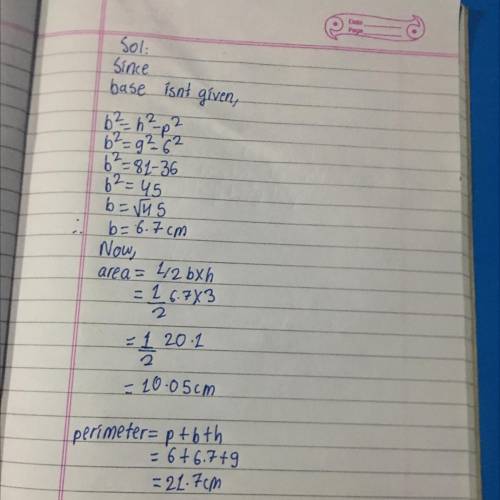 Date
Page
Sol:
Since
base isnt given,
b²=h²-p²
b²=9²-6²
b²=81-36
b²=45
b=√45
∴ b=6.7cm
Now,
area= 1/2 b×h
= 1/2 6.7×3
= 1/2 20.1
= 10.05cm
perimeter= p+b+h
= 6+6.7+9
= 21.7cm